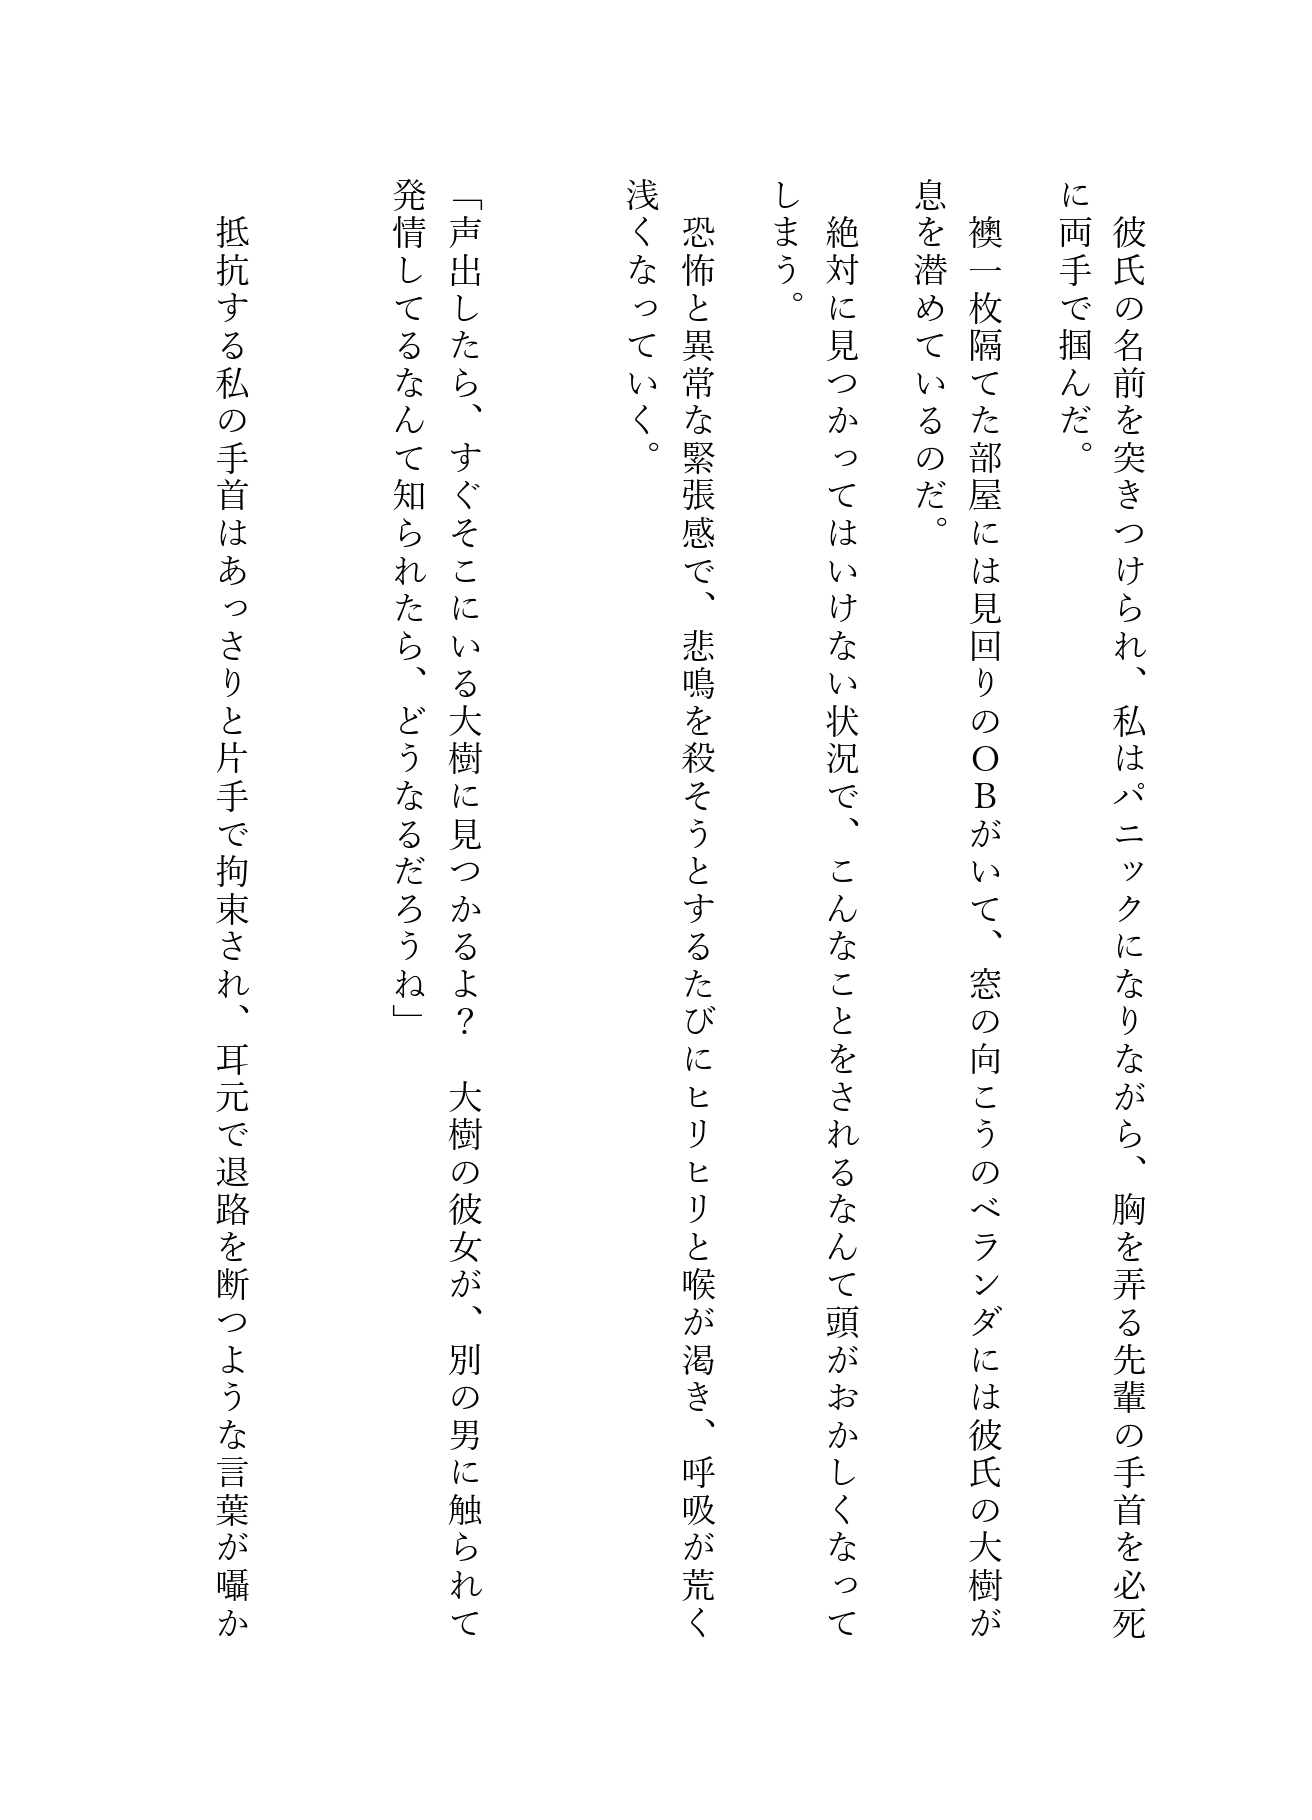 彼氏の名前を突きつけられ、私はパニックになりながら、胸を弄る先輩の手首を必死
に両手で掴んだ。
襖一枚隔てた部屋には見回りのＯＢがいて、窓の向こうのベランダには彼氏の大樹が
息を潜めているのだ。
絶対に見つかってはいけない状況で、こんなことをされるなんて頭がおかしくなって
しまう。
恐怖と異常な緊張感で、悲鳴を殺そうとするたびにヒリヒリと喉が渇き、呼吸が荒く
浅くなっていく。
「声出したら、すぐそこにいる大樹に見つかるよ？　大樹の彼女が、別の男に触られて
発情してるなんて知られたら、どうなるだろうね」
抵抗する私の手首はあっさりと片手で拘束され、耳元で退路を断つような言葉が囁か